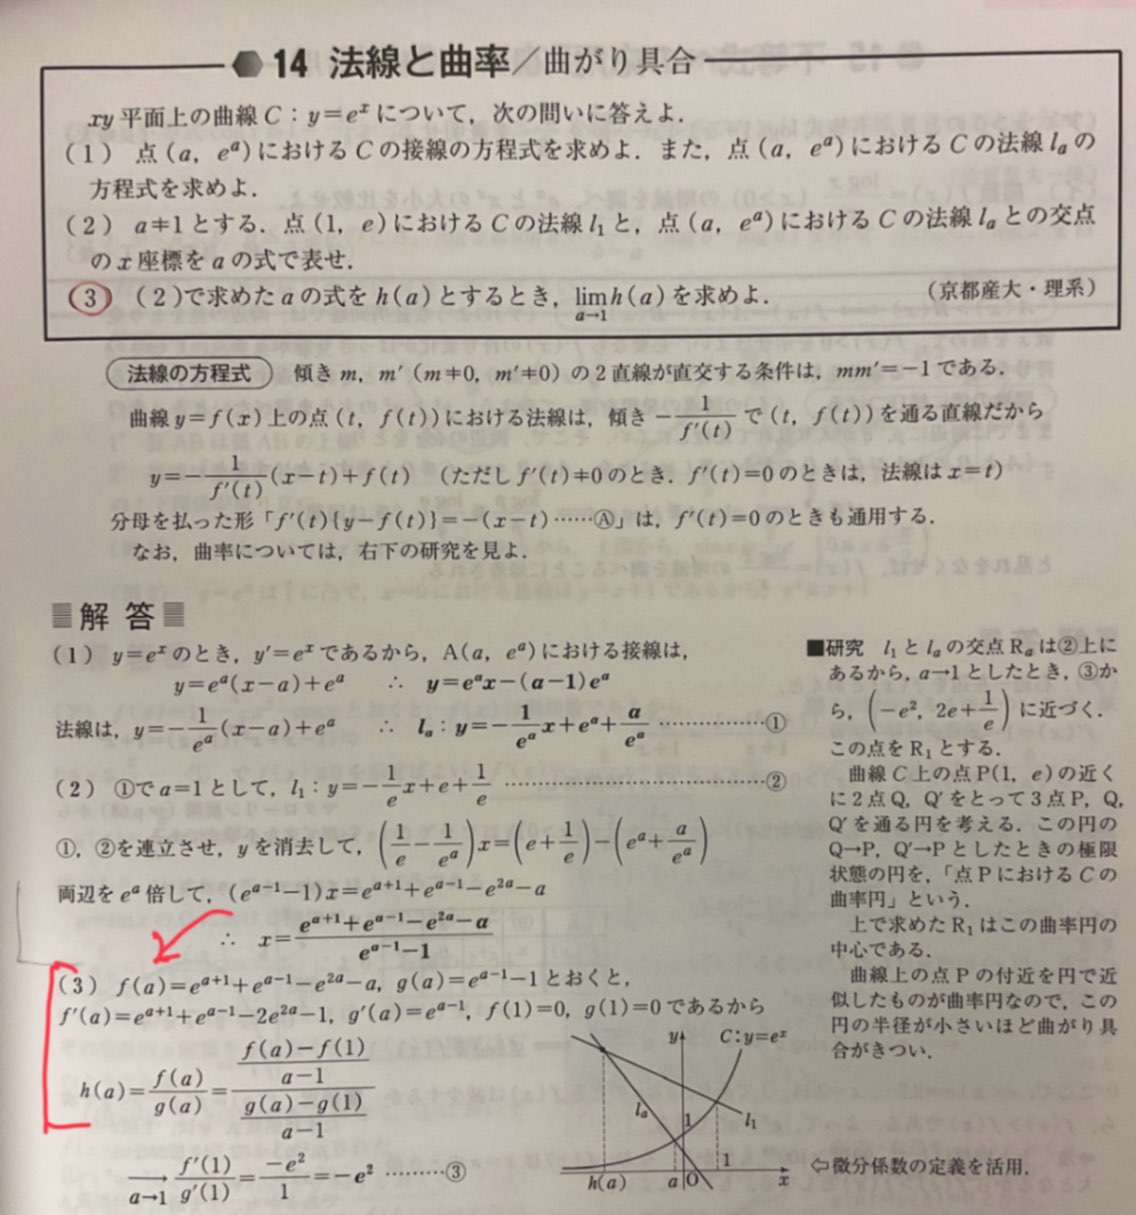 14 法線と曲率／曲がり具合
xy平面上の曲線C：y=e^xについて，次の問いに答えよ．
（1） 点(a, e^a)におけるCの接線の方程式を求めよ．また，点(a, e^a)におけるCの法線l_aの
方程式を求めよ．
（2） a≠1とする．点(1, e)におけるCの法線l_1と，点(a, e^a)におけるCの法線l_aとの交点
のx座標をaの式で表せ．
（3） （2）で求めたaの式をh(a)とするとき，lim_{a→1} h(a)を求めよ． （京都産大・理系）
法線の方程式 傾きm, m′（m≠0, m′≠0）の2直線が直交する条件は，mm′=−1である．
曲線y=f(x)上の点(t, f(t))における法線は，傾き −1/f′(t) で(t, f(t))を通る直線だから
y=−1/f′(t)(x−t)+f(t) （ただしf′(t)≠0のとき．f′(t)=0のときは，法線はx=t）
分母を払った形「f′(t){y−f(t)}=−(x−t)……Ⓐ」は，f′(t)=0のときも通用する．
なお，曲率については，右下の研究を見よ．
解答
（1） y=e^xのとき，y′=e^xであるから，A(a, e^a)における接線は，
y=e^a(x−a)+e^a ∴ y=e^a x−(a−1)e^a
法線は，y=−1/e^a(x−a)+e^a ∴ l_a：y=−1/e^a x+e^a+a/e^a ……………①
（2） ①でa=1として，l_1：y=−1/e x+e+1/e ……………………………②
①，②を連立させ，yを消去して，(1/e−1/e^a)x=(e+1/e)−(e^a+a/e^a)
両辺をe^a倍して，(e^{a−1}−1)x=e^{a+1}+e^{a−1}−e^{2a}−a
∴ x=(e^{a+1}+e^{a−1}−e^{2a}−a)/(e^{a−1}−1)
（3） f(a)=e^{a+1}+e^{a−1}−e^{2a}−a, g(a)=e^{a−1}−1とおくと，
f′(a)=e^{a+1}+e^{a−1}−2e^{2a}−1, g′(a)=e^{a−1}, f(1)=0, g(1)=0であるから
h(a)=f(a)/g(a)=((f(a)−f(1))/(a−1))/((g(a)−g(1))/(a−1))
→_{a→1} f′(1)/g′(1)=−e^2/1=−e^2 ………③
y
C：y=e^x
l_a
1
l_1
h(a)
a
O
1
x
⇦微分係数の定義を活用．
■研究 l_1とl_aの交点R_aは②上に
あるから，a→1としたとき，③か
ら，(−e^2, 2e+1/e)に近づく．
この点をR_1とする．
曲線C上の点P(1, e)の近く
に2点Q, Q′をとって3点P, Q,
Q′を通る円を考える．この円の
Q→P, Q′→Pとしたときの極限
状態の円を，「点PにおけるCの
曲率円」という．
上で求めたR_1はこの曲率円の
中心である．
曲線上の点Pの付近を円で近
似したものが曲率円なので，この
円の半径が小さいほど曲がり具
合がきつい．